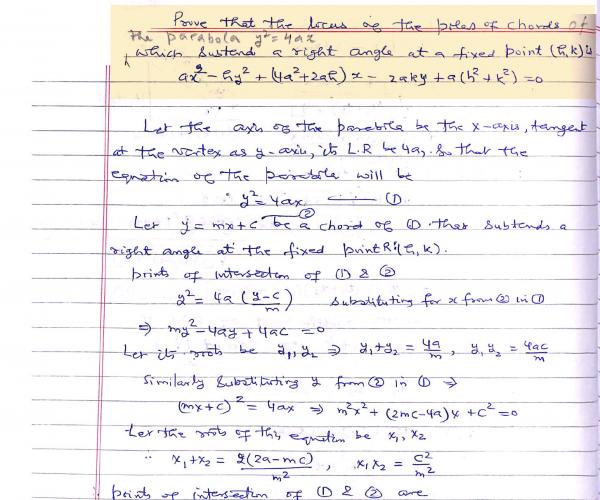 Prove that the locus of the poles of chords of
the parabola y² = 4ax
which sustend a right angle at a fixed point (h,k) is
ax² - hy² + (4a² + 2ah) x - 2aky + a(h² + k²) = 0
Let the axis of the parabola be the x-axis, tangent
at the vertex as y-axis, its L.R be 4a, so that the
equation of the parabola will be
y² = 4ax ——— ①
Let y = mx+c ② be a chord of ① that subtends a
right angle at the fixed point R:(h,k).
points of intersection of ① & ②
y² = 4a (y-c/m) substituting for x from ② in ①
⇒ my² - 4ay + 4ac = 0
Let its roots be y₁, y₂ ⇒ y₁+y₂ = 4a/m, y₁y₂ = 4ac/m
Similarly substituting y from ② in ① ⇒
(mx+c)² = 4ax ⇒ m²x² + (2mc-4a)x + c² = 0
Let the roots of this equation be x₁, x₂
∴ x₁+x₂ = 2(2a-mc)/m², x₁x₂ = c²/m²
points of intersection of ① & ② are